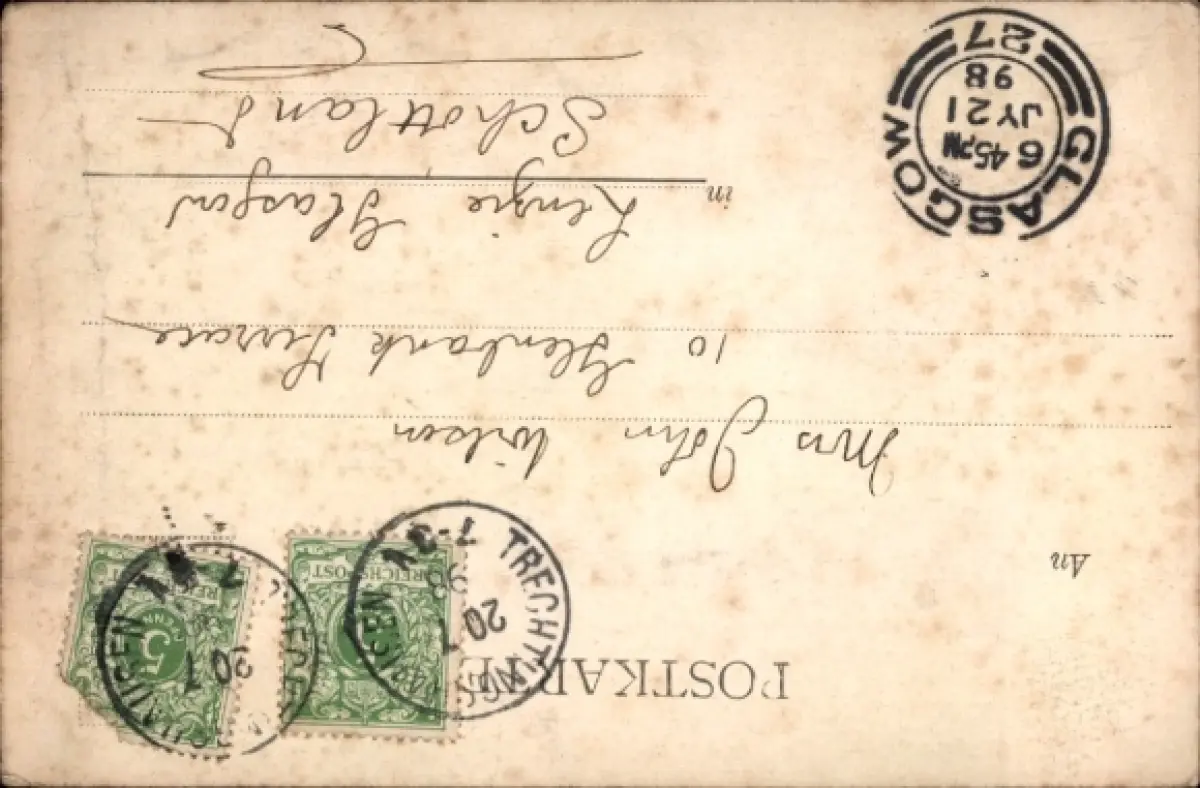 POSTKARTE
TRECHTINGSHAUSEN
20 7
98
7-8V
REICHSPOST
TRECHTINGSHAUSEN
20 7
7-8V
5
PFENNIG
An
Mrs John Wilson
10 Glenbank Terrace
in Lenzie Glasgow
Schottland
GLASGOW
6 45PM
JY 21
98
27